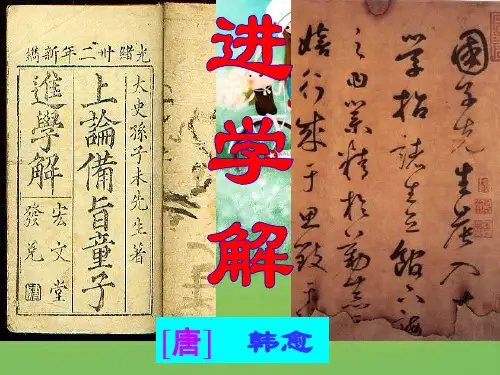 光緒廿二年新鐫
太史孫子未先生著
上論備旨童子
進學解
宏文堂
發兌
进学解
國子先生晨入太
學招諸生立館下誨
之曰業精於勤荒于
嬉行成于思毀于
[唐] 韩愈